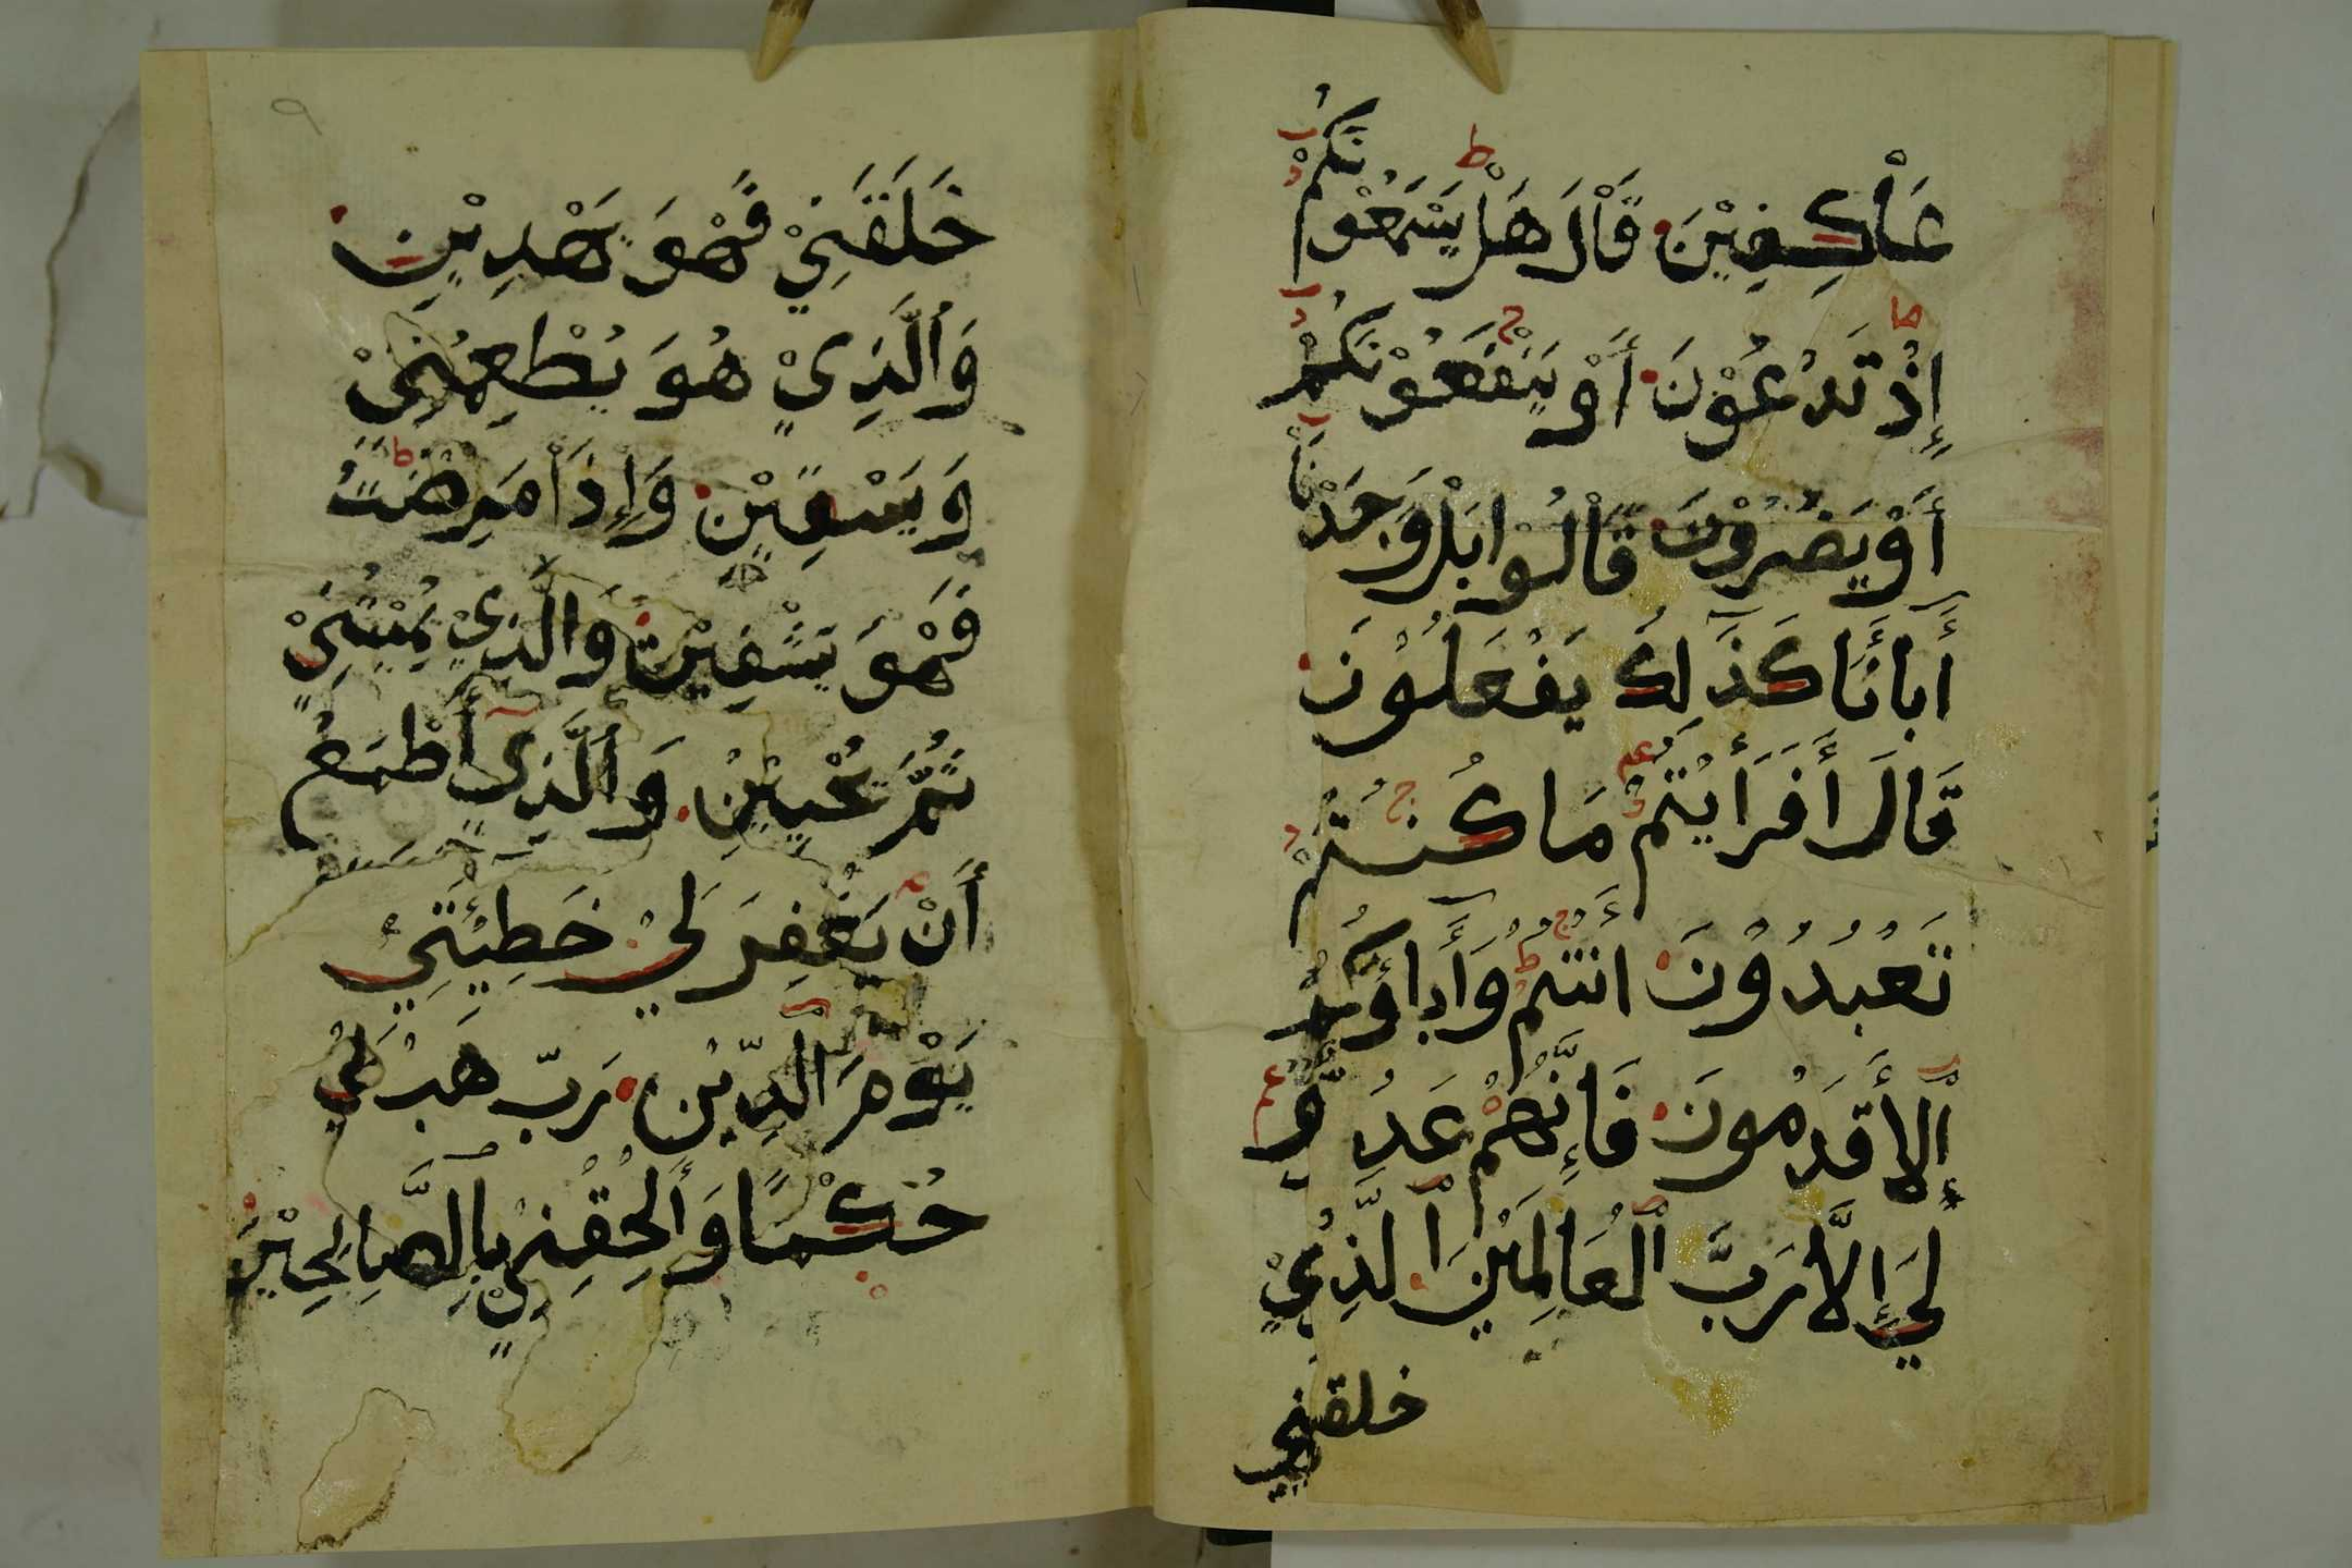 عَاْكِفِيْنَ قَاْلَ هَلْ يَسْمَعُوْنَكُمْ
إِذْ تَدْعُوْنَ أَوْ يَنْفَعُوْنَكُمْ
أَوْ يَضُرُوْنَ قَاْلُوْا بَلْ وَجَدْنَاْ
أَبَائَنَا كَذَلِكَ يَفْعَلُوْنَ
قَالَ أَفَرَأَيْتُمْ مَا كُنْتُمْ
تَعْبُدُوْنَ أَنْتُمْ وَأَبَاؤُكُمُ
اٌلأَقْدَمُونَ فَإِنَّهُمْ عَدُوٌّ
لِيَ إِلَّا رَبَّ الْعَالَمِيْنَ الَّذِيْ
خلقني
٩
خَلَقَنِيْ فَهْوَ يَهْدِيْنِ
وَالَّذِيْ هُوَ يُطْعِمُنِيْ
وَيَسْقِيْنِ وَإِذَاْ مَرِضْتُ
فَهْوَ يَشْفِيْنِ وَالَّذِيْ يُمِيْتُنِيْ
ثُمَّ يُحْيِيْنِ وَالَّذِي أَطْمَعُ
أَنْ يَغْفِرَ لِيْ خَطِيْئَتِيْ
يَوْمَ الدِّيْنِ رَبِّ هَبْ لِيْ
حُكْمًا وَأَلْحِقْنِيْ بِالصَّالِحِيْنَ